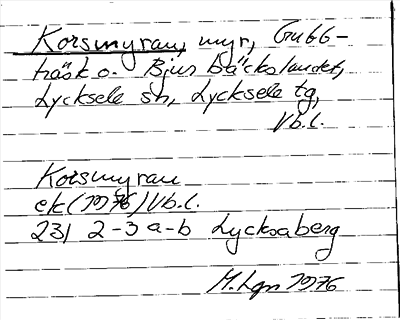 Korsmyran, myr, Gubb-
träsk o. Bjurbäckslandet,
Lycksele sn, Lycksele tg,
Vb.l.
Korsmyran
ek (1976) Vb.l.
231 2-3 a-b Lycksaberg
M. Lgn 1976